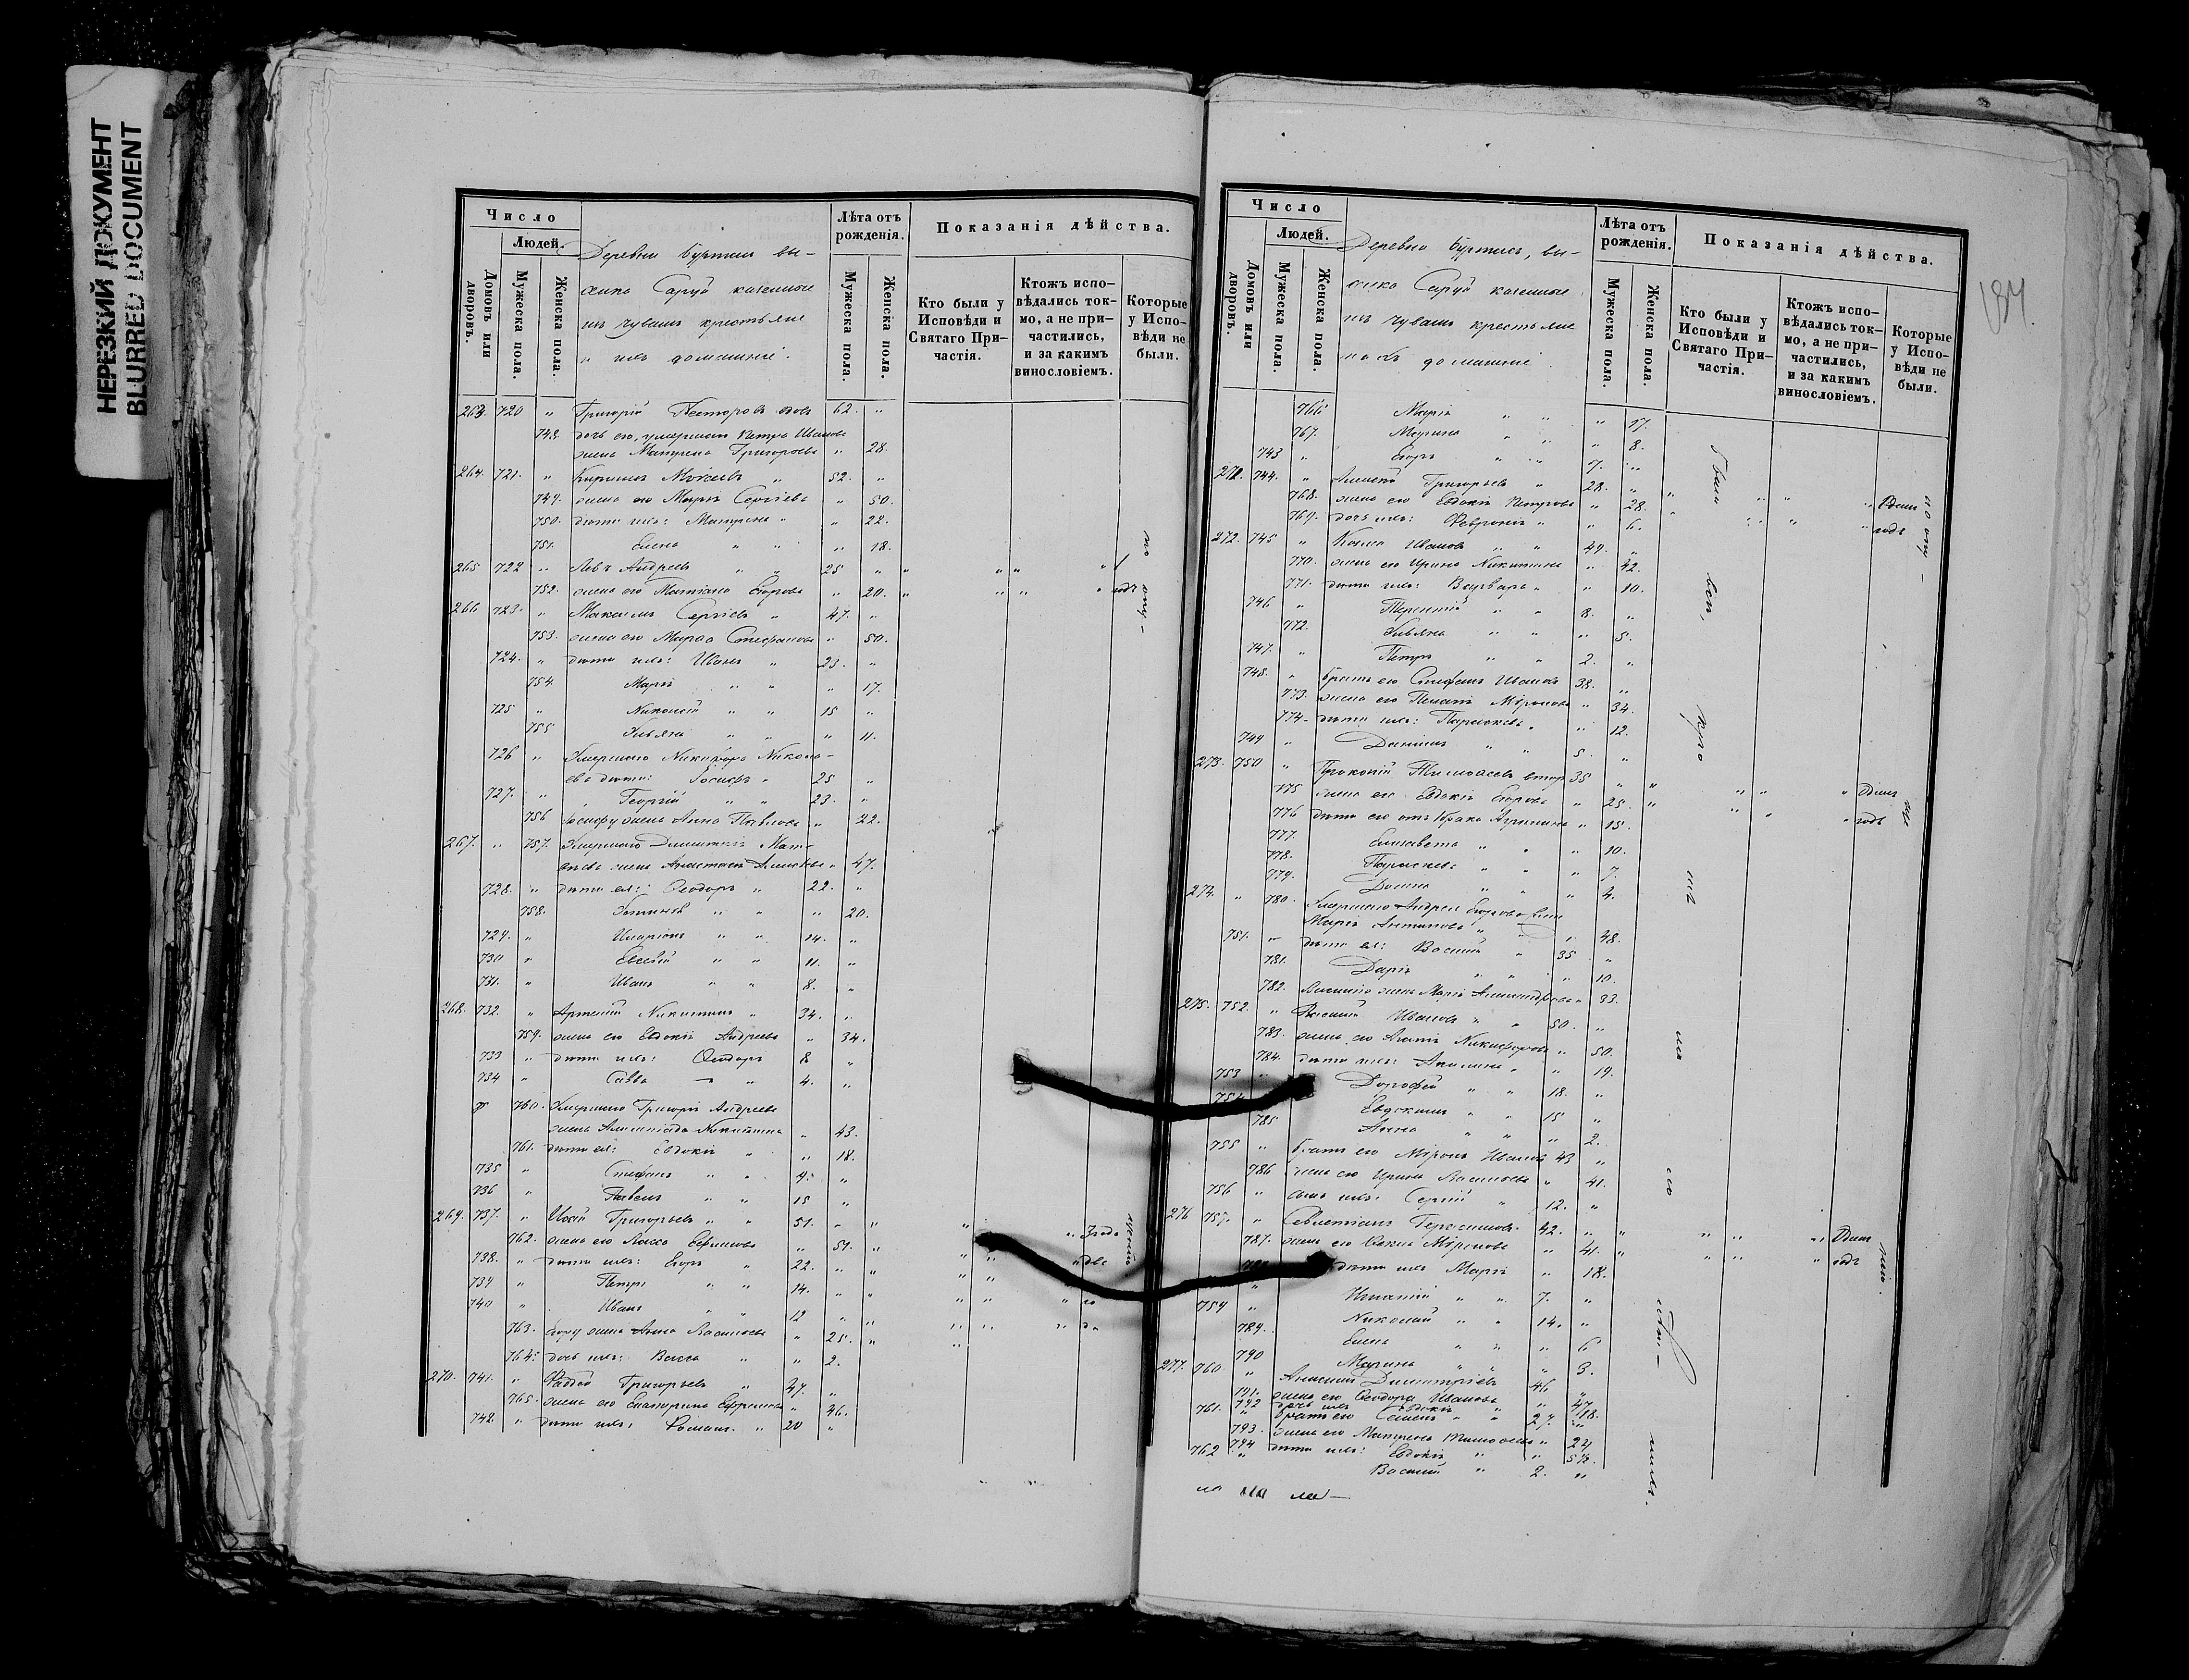 НЕРЕЗКИЙ ДОКУМЕНТ
BLURRED DOCUMENT
Число
Людей.
Домовъ или дворовъ.
Мужеска пола.
Женска пола.
Лѣта отъ рожденія.
Мужеска пола.
Женска пола.
Показанія дѣйства.
Кто были у Исповѣди и Святаго Причастія.
Ктожъ исповѣдались токмо, а не причастились, и за какимъ винословіемъ.
Которые у Исповѣди не были.
Деревни
Саруй казенные
изъ чувашъ крестьяне
и ихъ домашніе.
263. 720 " Григорій Несторовъ вдовъ 62. "
748. дочь его, умершаго Петра Иванова
жена Матрена Григорьева " 28.
264. 721. " Кириллъ Мокеевъ " 52. "
749. жена его Марія Сергіева " 50.
750. дѣти ихъ: Матрена " " 22.
751. Елена " " " 18.
265 722 " Левъ Андреевъ " " 25 "
752. жена его Татіана Егорова " 20. " годъ
266 723. " Максимъ Сергіевъ " 47. "
753. жена его Марѳа Стефанова " 50.
724. " дѣти ихъ: Иванъ " 23. "
754. Марія " " " 17.
725 " Николай " " 15 "
755 Ульяна " " " 11.
726 " Умершаго Никифора Никола-
ева дѣти: Іосифъ " 25 "
727. " Георгій " " 23. "
756 Іосифу жена Анна Павлова " 22.
267. " 757. Умершаго Димитрія Мат-
вѣева жена Анастасія Алексѣева " 47.
728. " дѣти ея: Ѳеодоръ " 22. "
758. Устинія " " " 20.
729. " Иларіонъ " " 14. "
730 " Евсевій " " 11. "
731. " Иванъ " " 8. "
268. 732. " Артемій Никитинъ " 34. "
759. жена его Евдокія Андреева " 34.
733 " дѣти ихъ: Ѳеодоръ 8 "
734 " Савва " 4. "
760. Умершаго Григорія Андреева
жена Никитина " 43.
761. дѣти ея: Евдокія " " 18.
735 " Стефанъ " " 9. "
736 " Павелъ " " 15 "
269. 737. " Григорьевъ " " 51. "
762. жена его Васса Ефимова " 51. "
738. " дѣти ихъ: Егоръ " 22. "
739 " Петръ " " 14. "
740 " Иванъ " " 12 "
763. Егору жена Анна Васильева " 25. "
764. дочь ихъ: Васса " " 2.
270. 741. " Ѳаддей Григорьевъ " 47. "
765. жена его Екатерина Ефремова " 46.
742. " дѣти ихъ: Романъ. " 20 "
Число
Людей.
Домовъ или дворовъ.
Мужеска пола.
Женска пола.
Лѣта отъ рожденія.
Мужеска пола.
Женска пола.
Показанія дѣйства.
Кто были у Исповѣди и Святаго Причастія.
Ктожъ исповѣдались токмо, а не причастились, и за какимъ винословіемъ.
Которые у Исповѣди не были.
Деревни
Саруй казенные
изъ чувашъ крестьяне
и ихъ домашніе
766 Марія " " " 17.
767. Марина " " " 8.
743 " Егоръ " " 7. "
744. " Алексѣй Григорьевъ " 28. "
768. жена его Евдокія Петрова " 28. " Одинъ
769. дочь ихъ: Февронія " " 6. " годъ
272. 745 " Козма Ивановъ " " 49. "
770. жена его Ирина Никитина " 42.
771. дѣти ихъ: Варвара " " 10.
746 " Терентій " " 8. "
772. Ульяна " " " 5.
747. " Петръ " " 2. "
748. " братъ его Стефанъ Ивановъ 38. "
773. жена его Миронова " 34.
774. дѣти ихъ: Параскева " " 12.
749 " Даніилъ " " 5. "
273. 750 " Прокопій Тимоѳеевъ втор. 35 "
775 жена его Евдокія Егорова " 25. " Одинъ
776 дѣти его отъ 1 брака Агрипина " 15. " годъ
777. Елисавета " " " 10.
778. Параскева " " " 7.
779. Домна " " " 4.
274. " 780. Умершаго Андрея Егорова жена
Марія Антипова " " 48.
751. " дѣти ея: Василій " 35 "
781. Дарія " " " 10.
782. Василію жена Марія Александрова " 33.
275. 752. " Василій Ивановъ " " 50. "
783. жена его Агаѳія Никифорова " 50.
784. дѣти ихъ: Акилина " " 19.
753 " Дорофей " " 18. "
754 Евдокимъ " " 15 "
785 Анна " " " 2.
755 " братъ его Миронъ Ивановъ 43 "
786 жена его Ирина Васильева " 41.
756 " сынъ ихъ: Сергій " 12. "
276 757. " Севастіанъ Герасимовъ. 42. " Одинъ
787. жена его Миронова " 41. " годъ
дѣти ихъ Марія " 18.
Игнатій " " 7. "
759 " Николай " " 14. "
789. Елена " " " 6
790 Марина " " " 3.
277. 760. " Алексѣй Димитріевъ 46 "
791. жена его Ѳеодора Иванова " 47.
792 дочь ихъ Евдокія " " 18.
761. " братъ его Семенъ " " 27. "
793. жена его Матрена Тимоѳеева " 24
794 дѣти ихъ: Евдокія " " 5½.
762 " Василій " 2. "